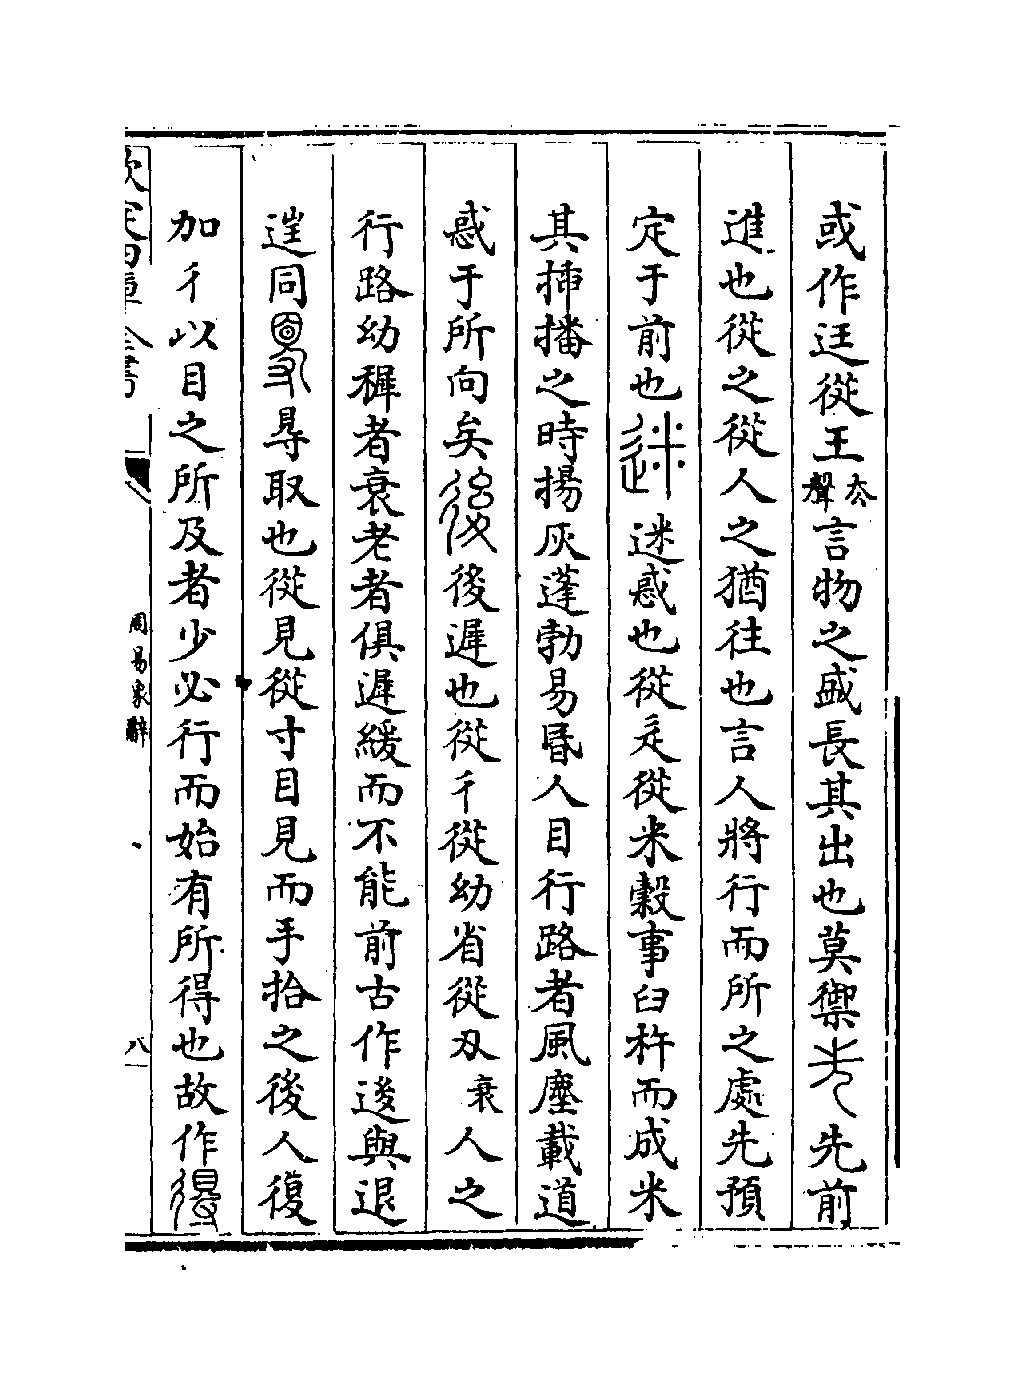 或作迋從王去聲言物之盛長其出也莫禦先先前
進也從之從人之猶往也言人將行而所之處先預
定于前也迷迷惑也從辵從米穀事臼杵而成米
其揷播之時揚灰蓬勃易昬人目行路者風塵載道
惑于所向矣後後遲也從彳從幼省從夊衰人之
行路幼穉者衰老者俱遲緩而不能前古作逡與退
逞同㝵尋取也從見從寸目見而手拾之後人復
加彳以目之所及者少必行而始有所得也故作得
欽定四庫全書
周易象辭
八